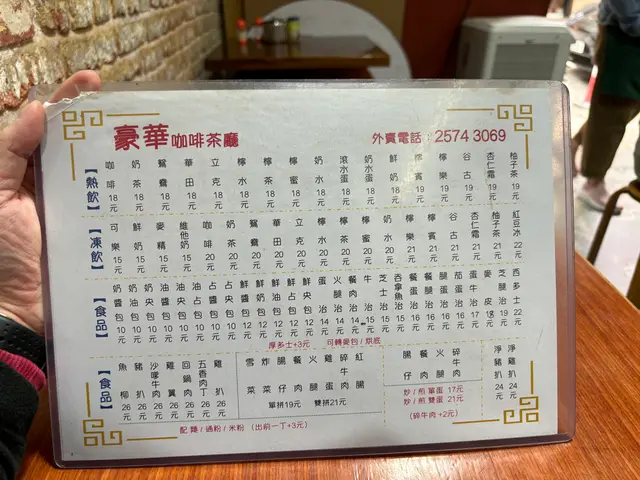 豪華咖啡茶廳
外賣電話：2574 3069
【熱飲】
咖啡 18元
奶茶 18元
鴛鴦 18元
華田 18元
立克 18元
檸水 18元
檸茶 18元
檸蜜 18元
奶水 18元
滾水蛋 18元
奶水蛋 18元
鮮奶 18元
檸賓 19元
檸樂 19元
谷古 19元
杏仁霜 19元
柚子茶 19元
【凍飲】
可樂 15元
鮮奶 15元
麥精 15元
維他奶 15元
咖啡 20元
奶茶 20元
鴛鴦 20元
華田 20元
立克 20元
檸水 20元
檸茶 20元
檸蜜 20元
奶水 20元
檸賓 21元
檸樂 21元
谷古 21元
杏仁霜 21元
柚子茶 21元
紅豆冰 22元
【食品】
奶醬包 10元
油醬包 10元
奶央包 10元
油央包 10元
占央包 10元
占醬包 10元
鮮醬包 12元
鮮奶包 12元
鮮油包 12元
鮮占包 12元
鮮央包 12元
蛋治 14元
火腿治 14元
餐肉治 14元
牛治 15元
芝士治 15元
吞拿魚治 15元
餐蛋治 16元
腸蛋治 16元
腿蛋治 16元
茄蛋治 16元
蛋牛治 17元
麥皮 18元
芝腿治 19元
西多士 22元
厚多士+3元 可轉麥包/烘底
【食品】
魚柳 26元
豬扒 26元
沙嗲牛肉 26元
雞翼 26元
回鍋肉 26元
五香肉丁 26元
雞扒 26元
雪菜
炸菜
腸仔
餐肉
火腿
雞蛋
碎牛肉
紅腸
單拼19元 雙拼21元
腸仔
餐肉
火腿
碎牛肉
炒/煎單蛋 17元
炒/煎雙蛋 21元
(碎牛肉+2元)
淨豬扒 24元
淨雞扒 24元
配 麵/通粉/米粉 （出前一丁+3元）